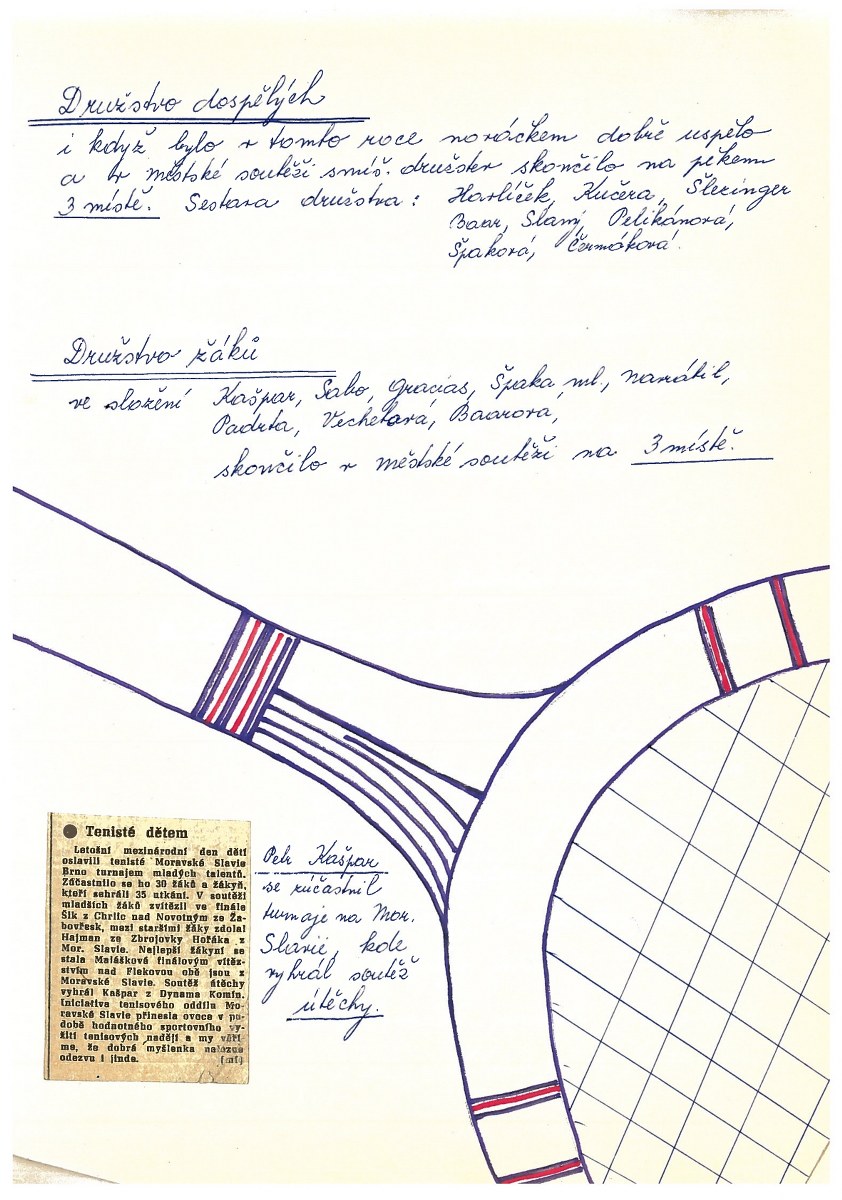 Družstvo dospělých
i když bylo v tomto roce nováčkem dobře uspělo
a v městské soutěži smíš. družstev skončilo na pěkem
3 místě. Sestava družstva: Havlíček, Kučera, Šlezinger
Baar, Slaný, Pelikánová,
Špaková, Čermáková.
Družstvo žáků
ve složení Kašpar, Sabo, Gracias, Špaka ml., Navrátil,
Padrta, Vechetová, Baarová,
skončilo v městské soutěži na 3 místě.
● Tenisté dětem
Letošní mezinárodní den dětí
oslavili tenisté Moravské Slavie
Brno turnajem mladých talentů.
Zúčastnilo se ho 30 žáků a žákyň,
kteří sehráli 35 utkání. V soutěži
mladších žáků zvítězil ve finále
Šik z Chrlic nad Novotným ze Ža-
bovřesk, mezi staršími žáky zdolal
Hajman ze Zbrojovky Hořáka z
Mor. Slavie. Nejlepší žákyní se
stala Malášková finálovým vítěz-
stvím nad Flekovou obě jsou z
Moravské Slavie. Soutěž útěchy
vyhrál Kašpar z Dynama Komín.
Iniciativa tenisového oddílu Mo-
ravské Slavie přinesla ovoce v po-
době hodnotného sportovního vy-
žití tenisových nadějí a my věří-
me, že dobrá myšlenka nalezne
odezvu i jinde. (mf)
Petr Kašpar
se zúčastnil
turnaje na Mor.
Slavii, kde
vyhrál soutěž
útěchy.